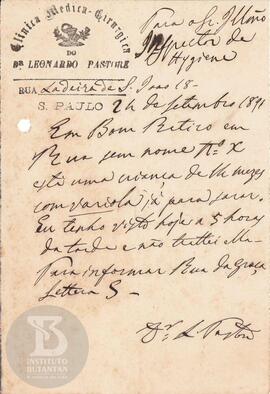 Clinica Medico-Cirurgica
DO
DR LEONARDO PASTORE
RUA Ladeira de S. Joao 18-
S. PAULO 24 de Setembro 189
Para o Sr. Illmo
Inspector de
Hygiene
Em Bom Retiro em
Rua sem nome Nº X
está uma criança de 14 mezes
com variola já para sarar.
Eu tenho visto hoje a 5 horas
da tarde e não trattei
Para informar Rua da Graça
Lettera S-
Dr. L. Pastore
INSTITUTO
BUTANTAN